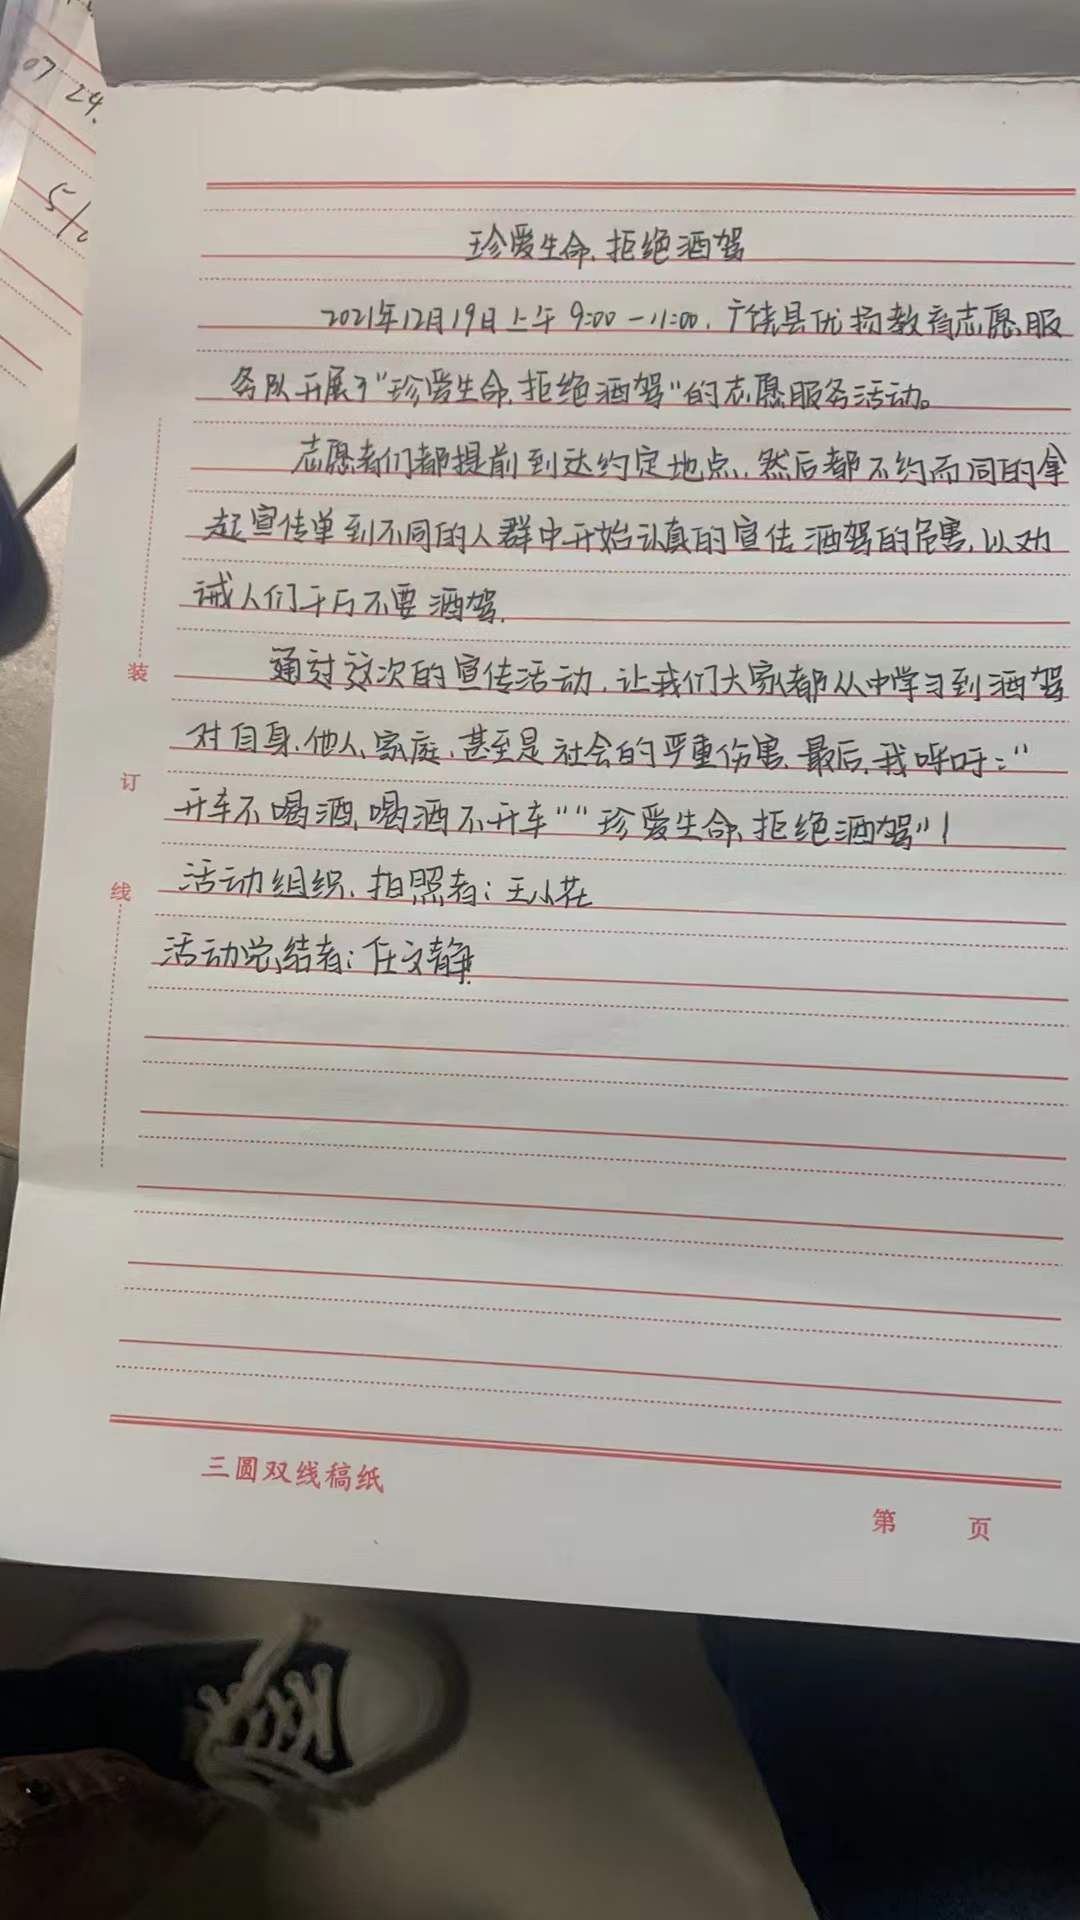 07 24.
珍爱生命、拒绝酒驾
2021年12月19日上午9:00-11:00，广饶县优扬教育志愿服
务队开展了“珍爱生命、拒绝酒驾”的志愿服务活动。
志愿者们都提前到达约定地点，然后都不约而同的拿
起宣传单到不同的人群中开始认真的宣传酒驾的危害，以劝
诫人们千万不要酒驾.
通过这次的宣传活动，让我们大家都从中学习到酒驾
对自身、他人、家庭、甚至是社会的严重伤害，最后，我呼吁：“
开车不喝酒，喝酒不开车”“珍爱生命、拒绝酒驾”！
活动组织、拍照者：王小花
活动总结者：任文静
装
订
线
三圆双线稿纸
第 页